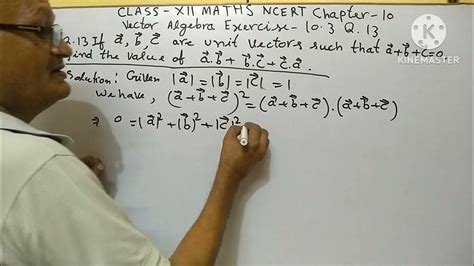 CLASS - XII MATHS NCERT Chapter-10
Vector Algebra Exercise-10.3 Q.13
Q.13 If a⃗, b⃗, c⃗ are unit vectors such that a⃗+b⃗+c⃗=0
find the value of a⃗.b⃗ + b⃗.c⃗+c⃗.a⃗.
Solution: Given |a⃗| = |b⃗| = |c⃗| = 1
we have, (a⃗+b⃗+c⃗)² = (a⃗+b⃗+c⃗).(a⃗+b⃗+c⃗)
⇒ 0 = |a⃗|² + |b⃗|² + |c⃗|²
KINEMASTER